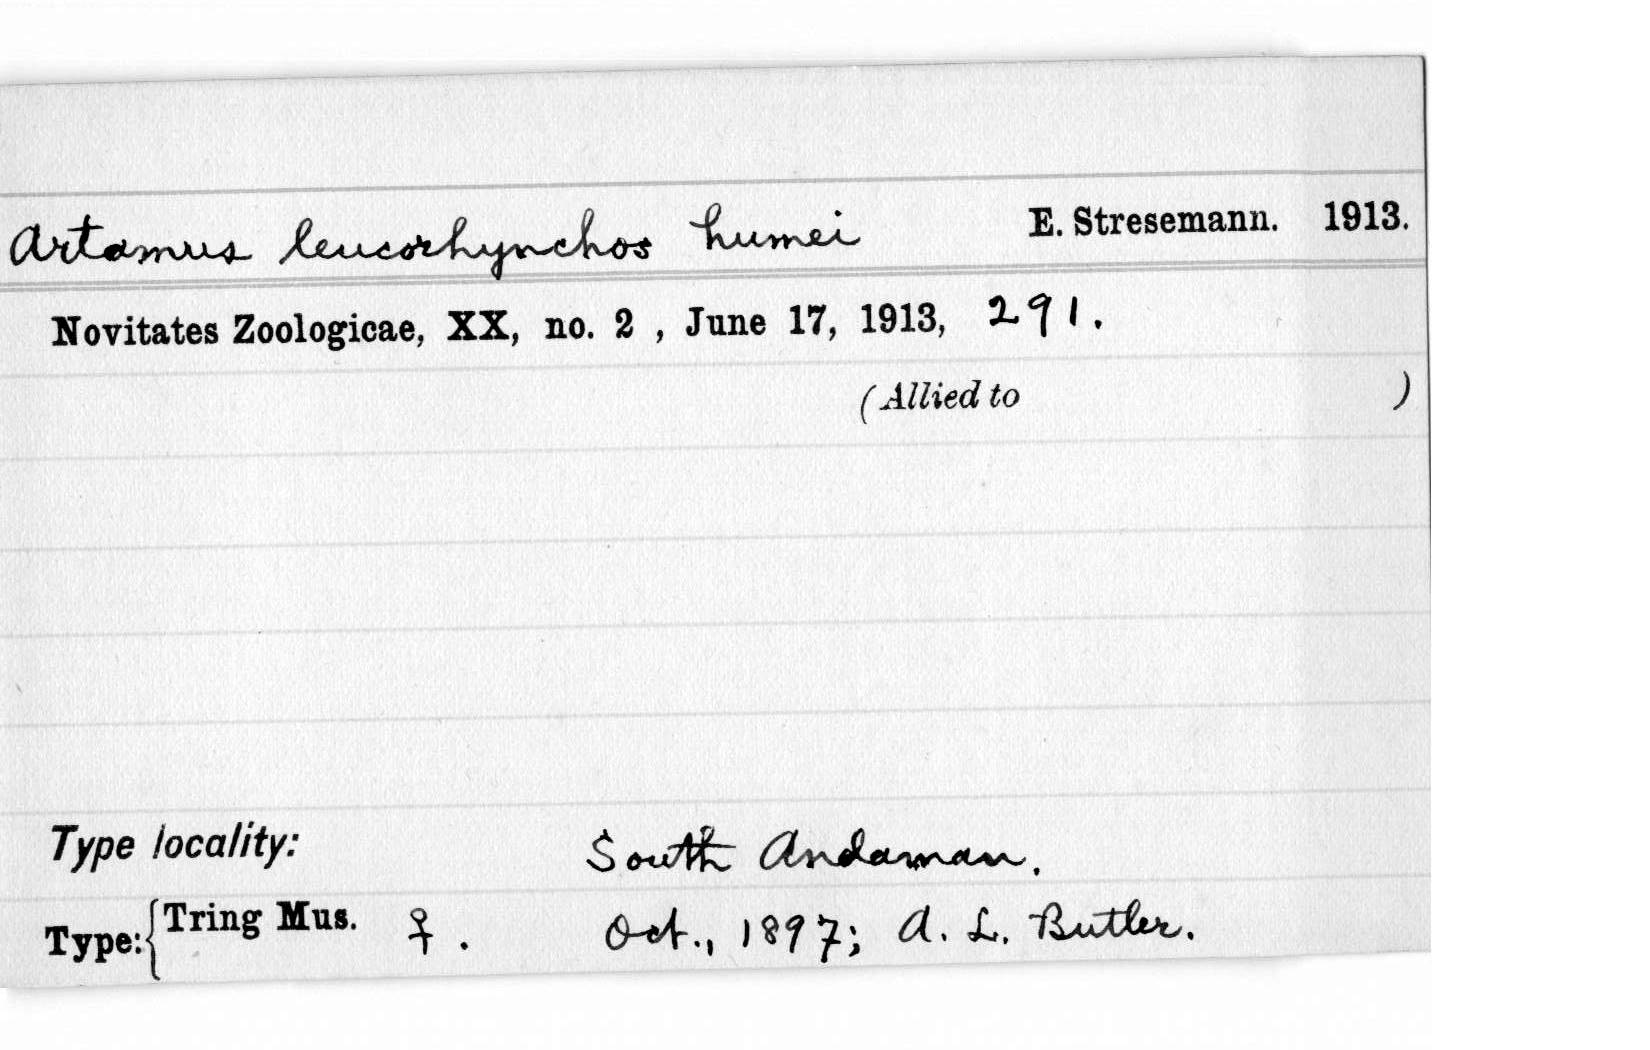 Artamus leucorhynchos humei E. Stresemann. 1913.
Novitates Zoologicae, XX, no. 2 , June 17, 1913, 291.
(Allied to )
Type locality: South Andaman.
Type: { Tring Mus. ♀. Oct., 1897; A. L. Butler.